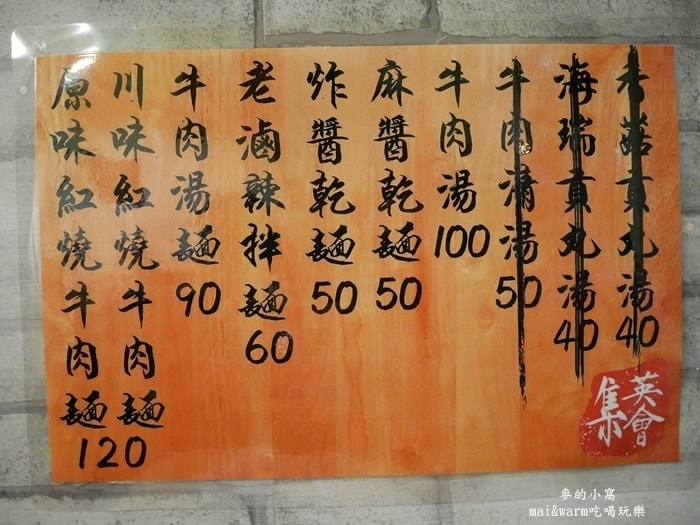 原味紅燒牛肉麵
川味紅燒牛肉麵
120
牛肉湯麵90
老滷辣拌麵60
炸醬乾麵50
麻醬乾麵50
牛肉湯100
牛肉清湯50
海瑞貢丸湯40
香菇貢丸湯40
集英會
麥的小窩
mai&warm吃喝玩樂